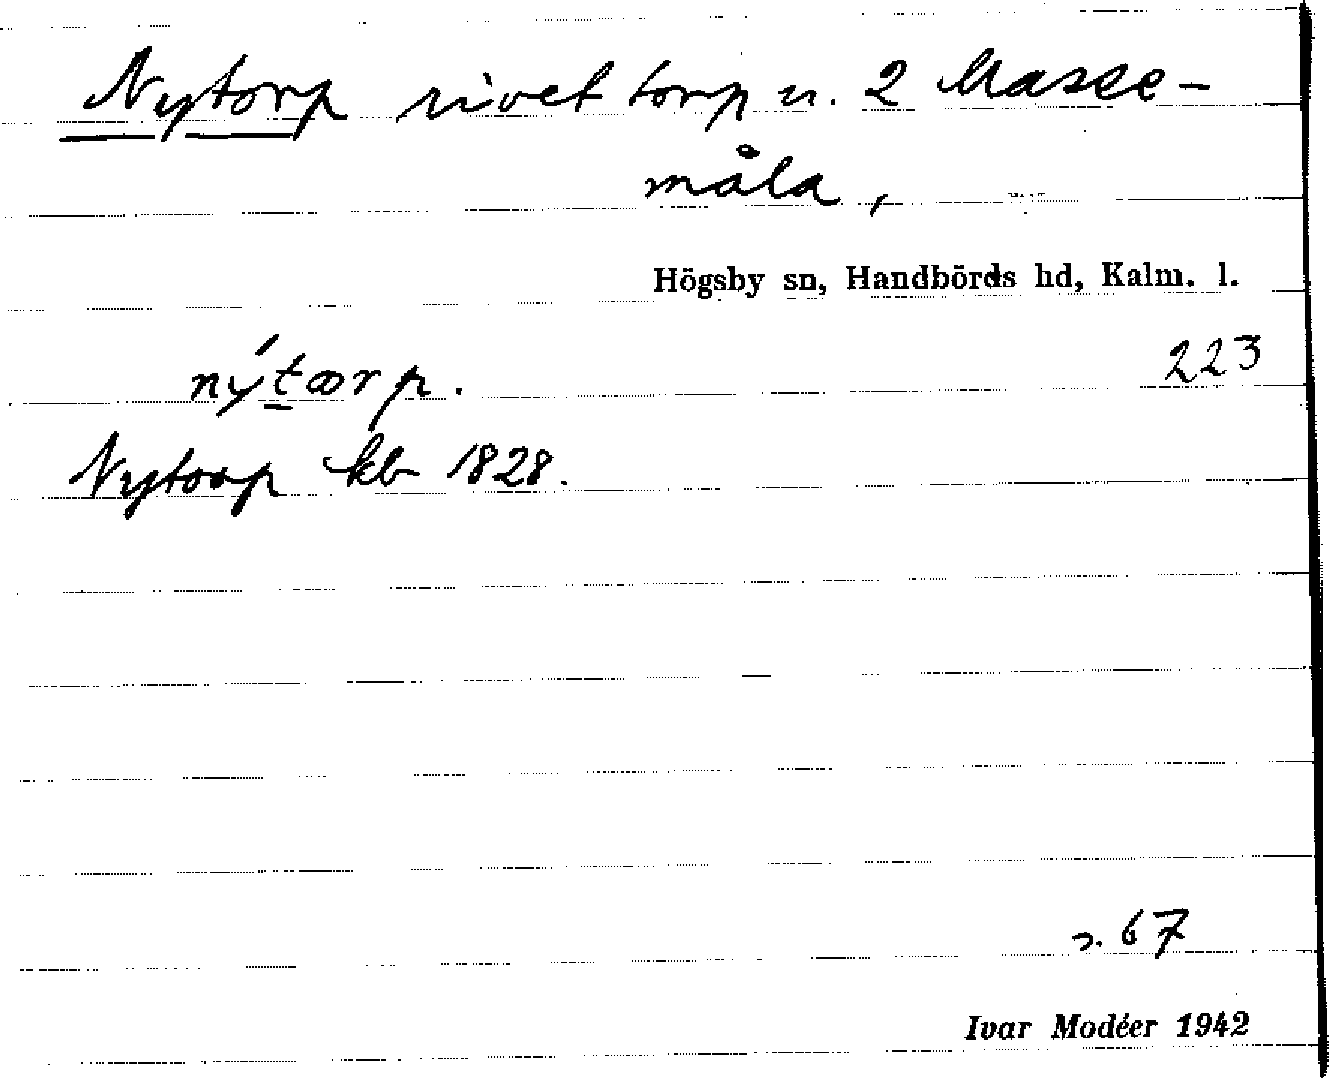 Nytorp rivet torp u. 2 Masse-
måla,
Högsby sn, Handbörds hd, Kalm. l.
223
nýtærp.
Nytorp kb 1828.
s. 67
Ivar Modéer 1942